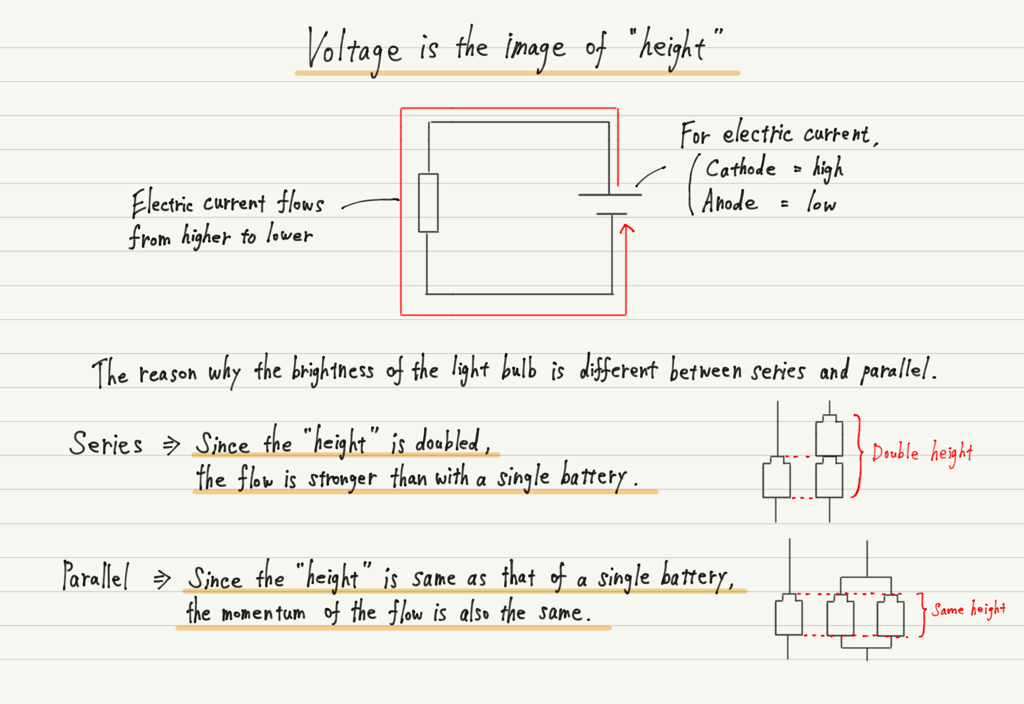 Voltage is the image of "height"
For electric current,
Cathode = high
Anode = low
Electric current flows
from higher to lower
The reason why the brightness of the light bulb is different between series and parallel.
Series ⇒ Since the "height" is doubled,
the flow is stronger than with a single battery.
Double height
Parallel ⇒ Since the "height" is same as that of a single battery,
the momentum of the flow is also the same.
Same height